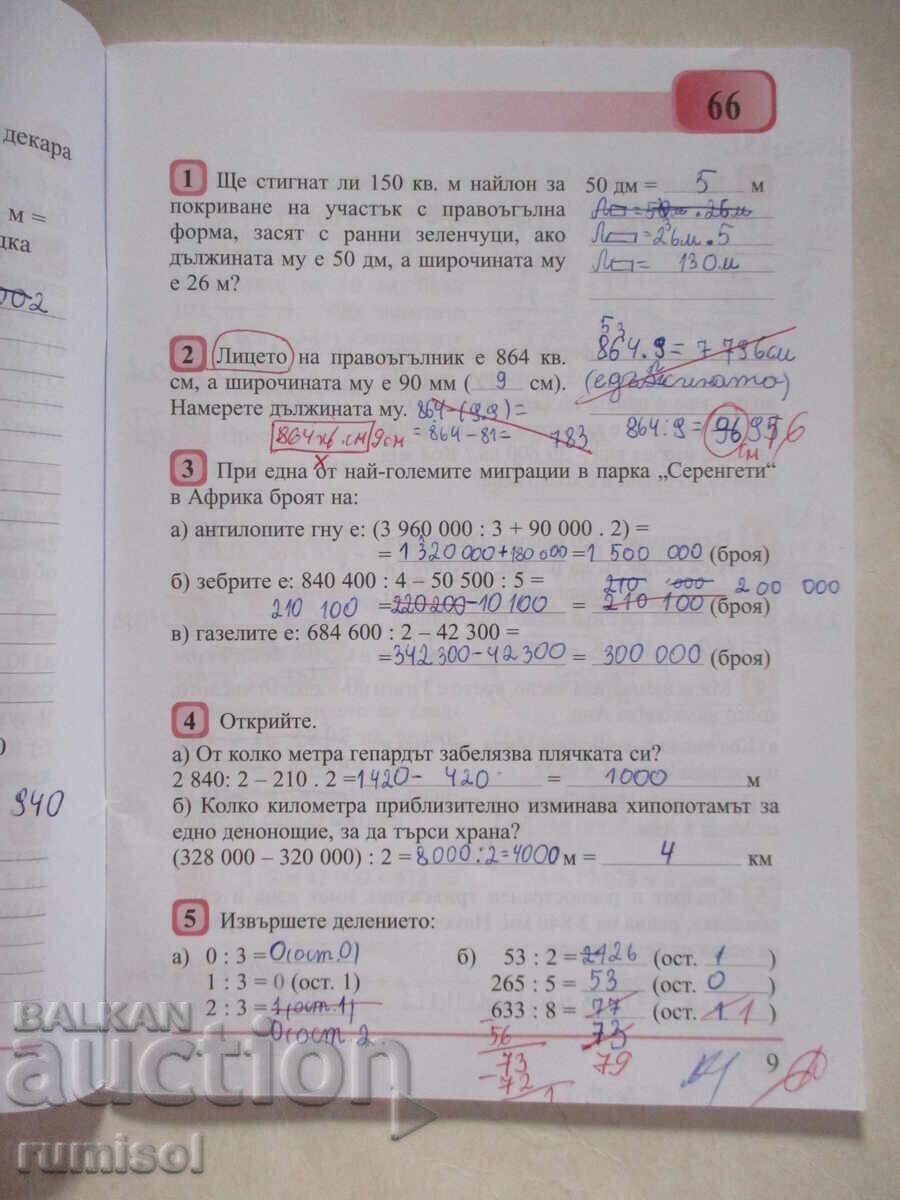 декара
м =
940
66
1 Ще стигнат ли 150 кв. м найлон за
покриване на участък с правоъгълна
форма, засят с ранни зеленчуци, ако
дължината му е 50 дм, а широчината му
е 26 м?
50 дм = 5 м
= 26м.5
= 130м
2 Лицето на правоъгълник е 864 кв.
см, а широчината му е 90 мм ( 9 см).
Намерете дължината му. 864-(9.9)=
864 кв.см 9см = 864-81= 783
53
864.9=7 796см
864:9=96
3 При една от най-големите миграции в парка „Серенгети“
в Африка броят на:
а) антилопите гну е: (3 960 000 : 3 + 90 000 . 2) =
= 1 320 000+180 000 = 1 500 000 (броя)
б) зебрите е: 840 400 : 4 – 50 500 : 5 =
210 000 200 000
210 100 = 220 200-10 100 = 210 100 (броя)
в) газелите е: 684 600 : 2 – 42 300 =
= 342 300-42 300 = 300 000 (броя)
4 Открийте.
а) От колко метра гепардът забелязва плячката си?
2 840: 2 – 210 . 2 = 1420- 420 = 1000 м
б) Колко километра приблизително изминава хипопотамът за
едно денонощие, за да търси храна?
(328 000 – 320 000) : 2 = 8000:2=4000 м = 4 км
5 Извършете делението:
а) 0 : 3 = 0(ост.0)
1 : 3 = 0 (ост. 1)
2 : 3 = 1(ост.1)
0(ост.2
б) 53 : 2 = 26 (ост. 1 )
265 : 5 = 53 (ост. 0 )
633 : 8 = 77 (ост. 1 1 )
56 73
73 79
-72
1
9
BALKAN
auction
rumisol